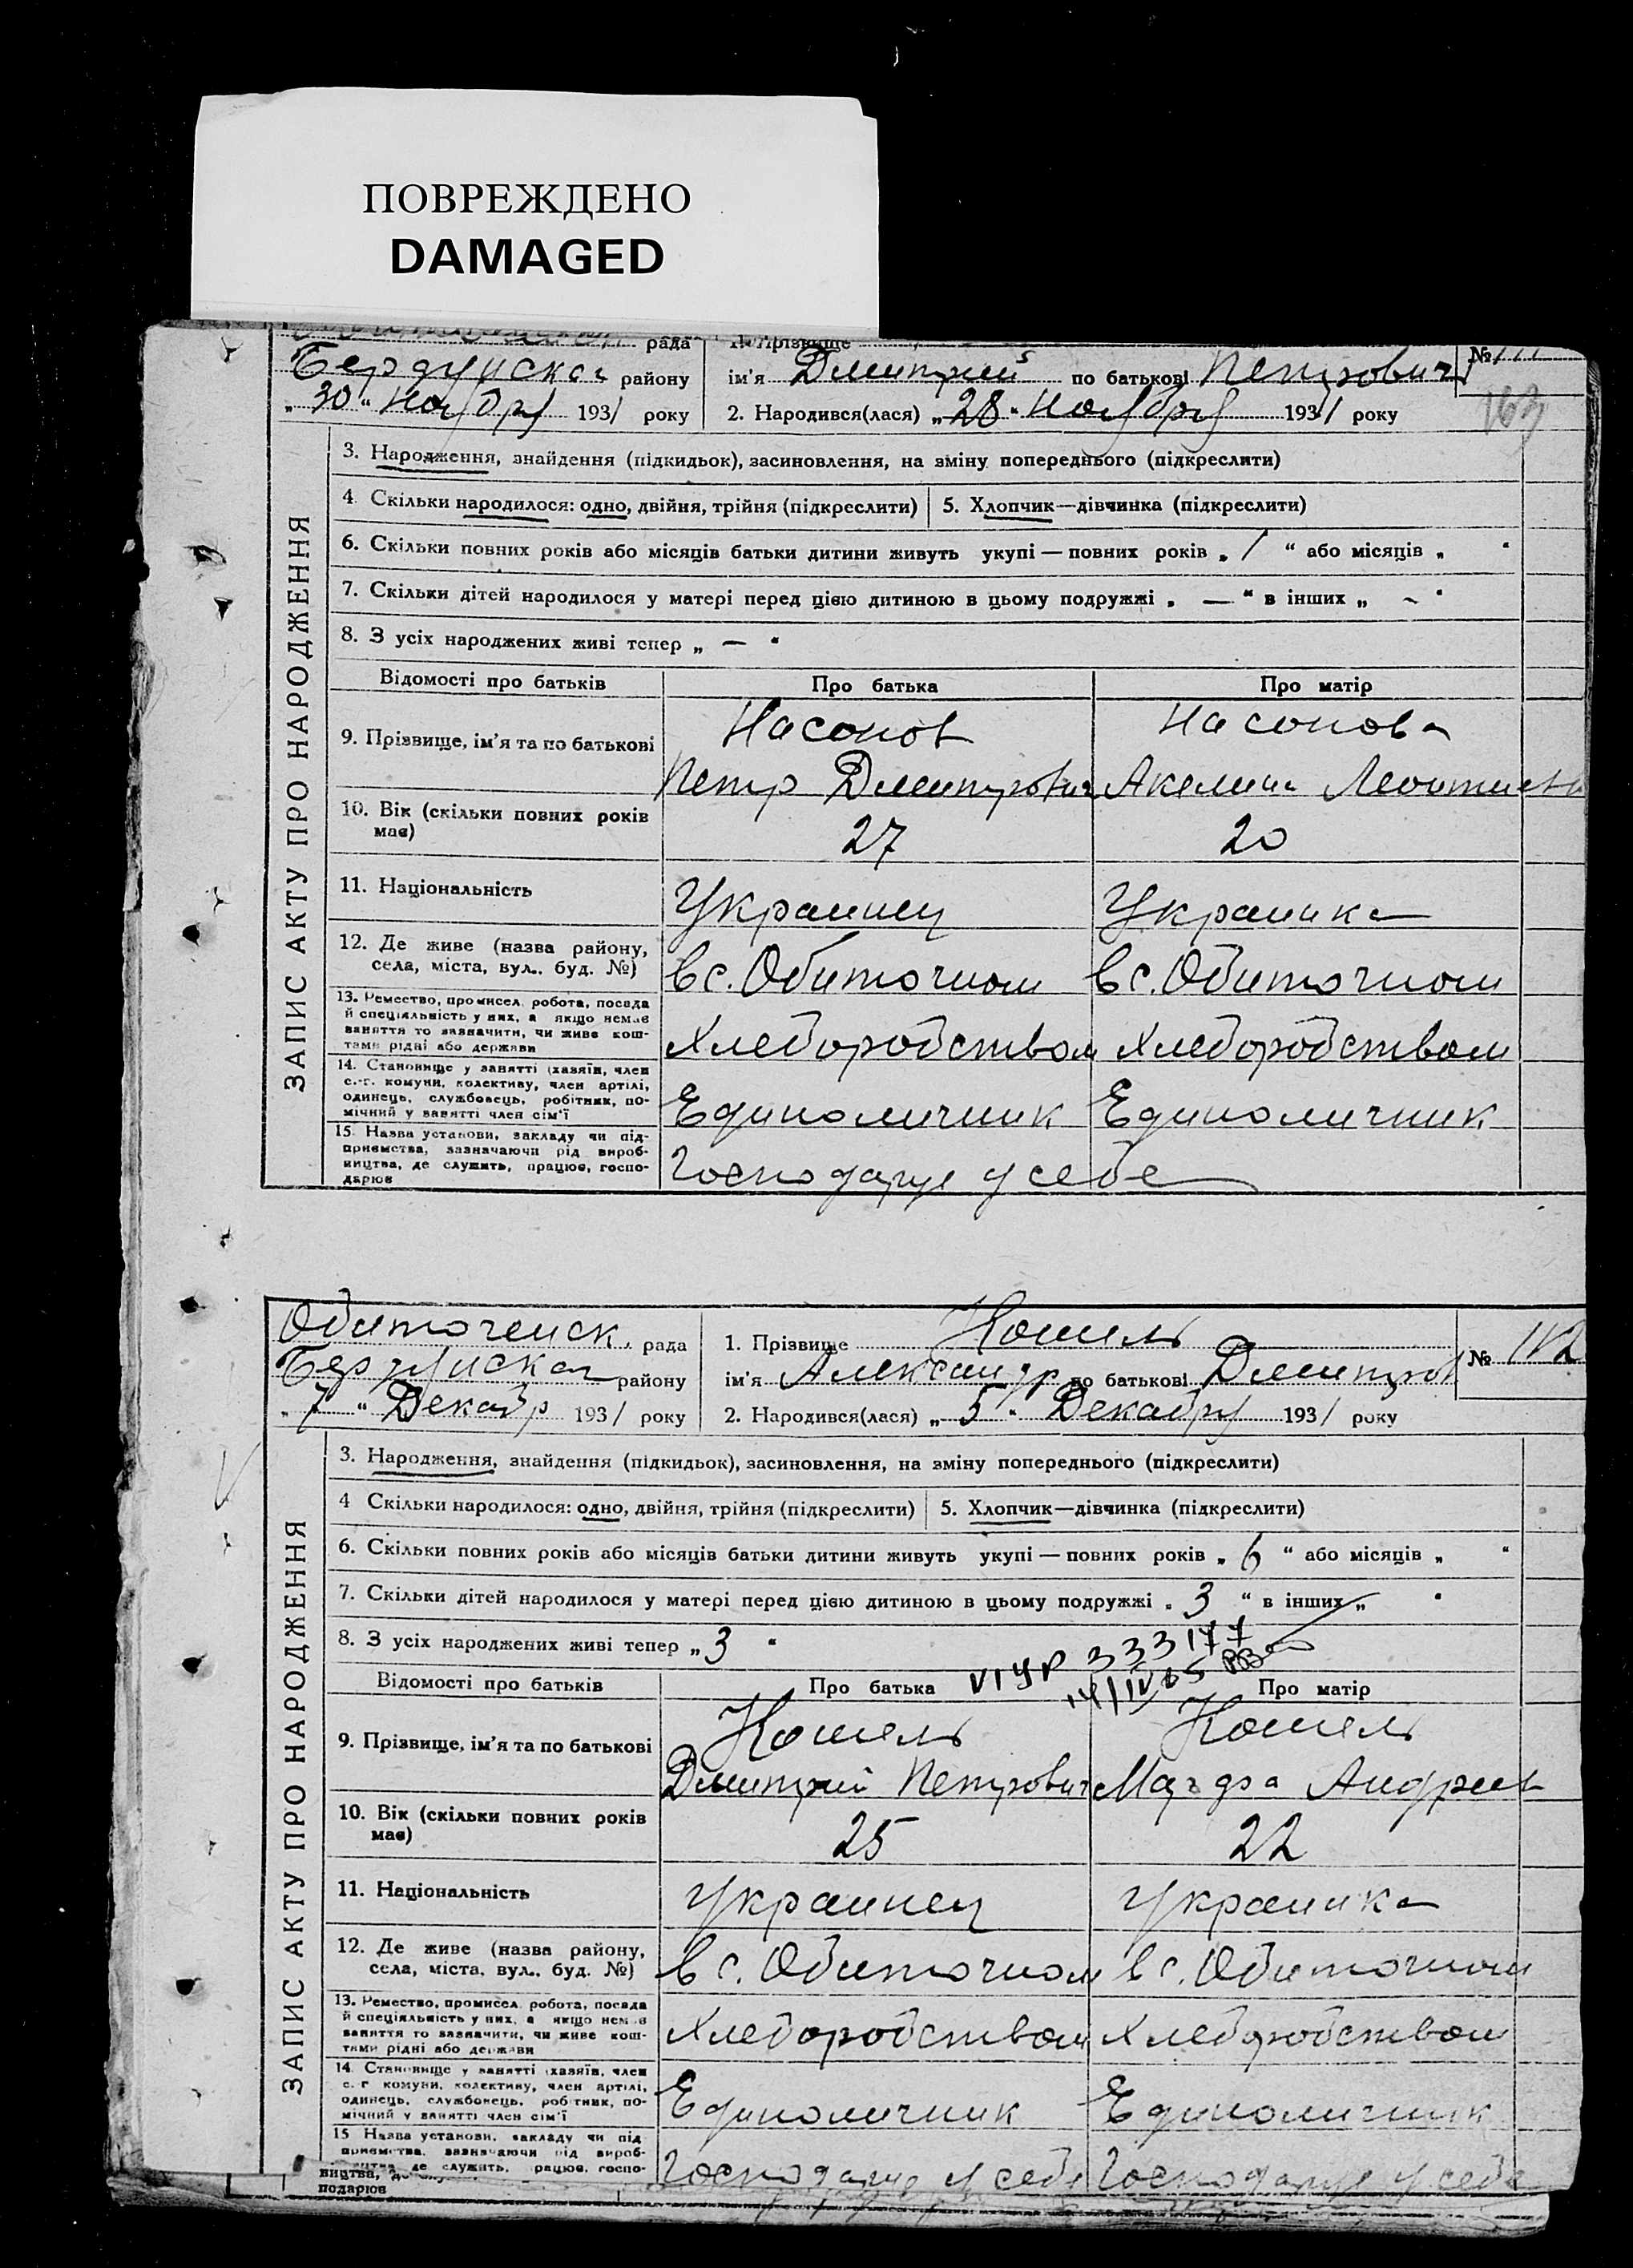 ПОВРЕЖДЕНО
DAMAGED
рада
1. Прізвище
№ 111
району
ім'я Дмитрий по батькові Петрович
163
„30“ Ноябр 1931 року
2. Народився(лася) „28“ Ноября 1931 року
ЗАПИС АКТУ ПРО НАРОДЖЕННЯ
3. Народження, знайдення (підкидьок), засиновлення, на зміну попереднього (підкреслити)
4. Скільки народилося: одно, двійня, трійня (підкреслити)
5. Хлопчик—дівчинка (підкреслити)
6. Скільки повних років або місяців батьки дитини живуть укупі — повних років „ 1 “ або місяців „ “
7. Скільки дітей народилося у матері перед цією дитиною в цьому подружжі „ — “ в інших „ ~ “
8. З усіх народжених живі тепер „ — “
Відомості про батьків
Про батька
Про матір
9. Прізвище, ім'я та по батькові
Насонов
Петр Дмитрович
Насонова
Акелина
10. Вік (скільки повних років має)
27
20
11. Національність
Украинец
Украинка
12. Де живе (назва району,
села, міста, вул., буд. №)
в с. Обиточном
в с. Обиточном
13. Ремество, промисел, робота, посада
й спеціяльність у них, а якщо немає
заняття то зазначити, чи живе кош-
тами рідні або держави
Хлеборобством
Хлеборобством
14. Становище у занятті (хазяїн, член
с.-г. комуни, колективу, член артілі,
одинець, службовець, робітник, по-
мічний у занятті член сім'ї
Единоличник
Единоличник
15. Назва установи, закладу чи під-
приємства, зазначаючи рід вироб-
ництва, де служить, працює, госпо-
дарює
Господарує у себе
Обиточенск. рада
1. Прізвище Кошель
№ 112
району
ім'я Александр по батькові Дмитров
„7“ Декабр 1931 року
2. Народився(лася) „5“ Декабря 1931 року
ЗАПИС АКТУ ПРО НАРОДЖЕННЯ
3. Народження, знайдення (підкидьок), засиновлення, на зміну попереднього (підкреслити)
4 Скільки народилося: одно, двійня, трійня (підкреслити)
5. Хлопчик—дівчинка (підкреслити)
6. Скільки повних років або місяців батьки дитини живуть укупі — повних років „ 6 “ або місяців „ “
7. Скільки дітей народилося у матері перед цією дитиною в цьому подружжі „ 3 “ в інших „ “
8. З усіх народжених живі тепер „ 3 “
Відомості про батьків
Про батька
Про матір
9. Прізвище, ім'я та по батькові
Кошель
Дмитрий Петрович
Кошель
Андреев
10. Вік (скільки повних років має)
25
22
11. Національність
Украинец
Украинка
12. Де живе (назва району,
села, міста, вул., буд. №)
в с. Обиточном
в с. Обиточном
13. Ремество, промисел, робота, посада
й спеціяльність у них, а якщо немає
заняття то зазначити, чи живе кош-
тами рідні або держави
Хлеборобством
Хлеборобством
14. Становище у занятті (хазяїн, член
с.-г комуни, колективу, член артілі,
одинець, службовець, робітник, по-
мічний у занятті член сім'ї
Единоличник
Единоличник
15 Назва установи, закладу чи під
приємства, зазначаючи рід вироб-
де служить, працює, госпо-
Господарує у себе
Господарує у себе
ництва,
подарює